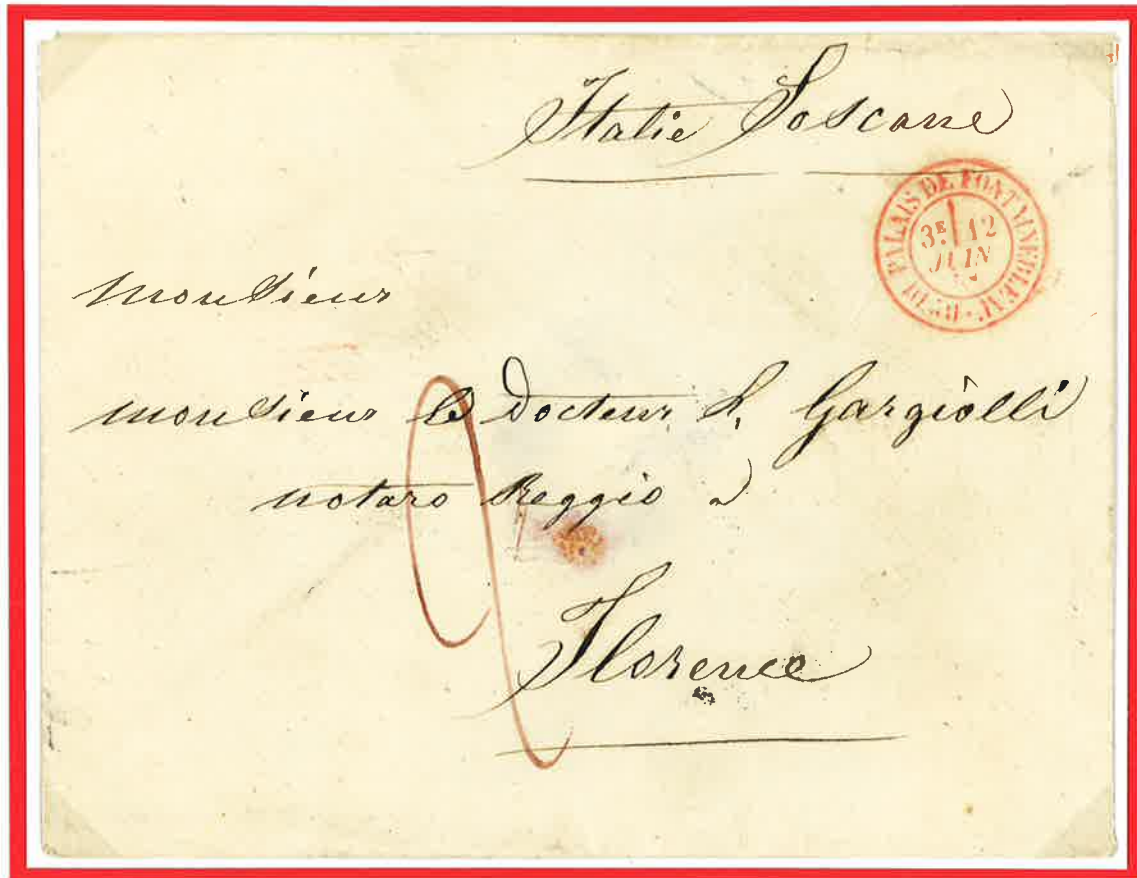 Italie Toscane
BUREAU DU PALAIS DE FONTAINEBLEAU
3E 12
JUIN
Monsieur
Monsieur le Docteur L. Gargiolli
notaro Reggio à
Florence